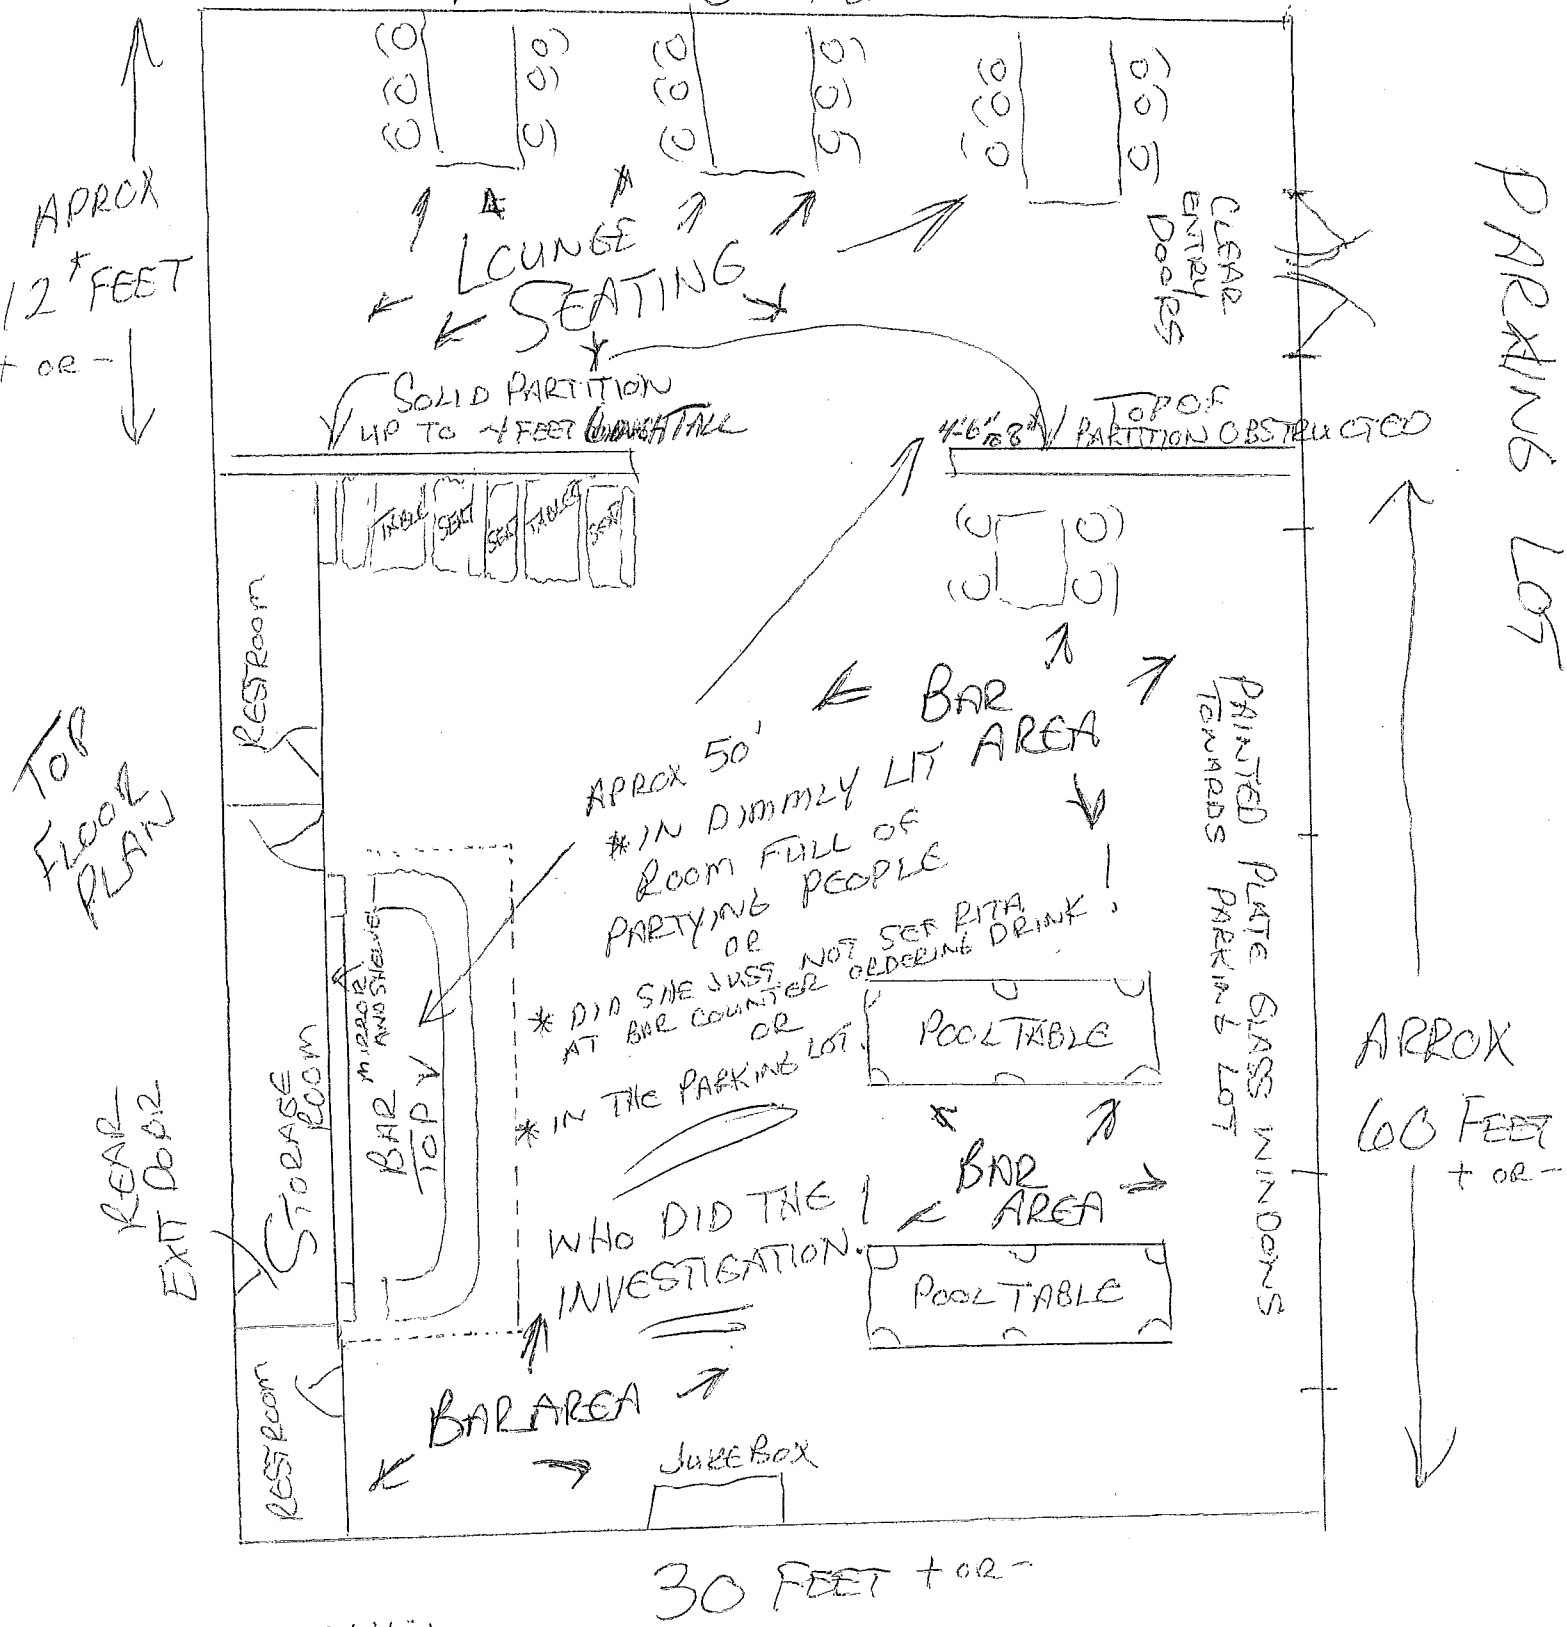 APROX
12* FEET
+ OR -
LOUNGE
SEATING
CLEAR
ENTRY
DOORS
PARKING LOT
SOLID PARTITION
UP TO 4 FEET TALL
4'6" TO 8"
TOP OF
PARTITION OBSTRUCTED
TABLE
SEAT
SEAT
TABLE
SEAT
RESTROOM
TOP
FLOOR
PLAN
BAR
AREA
APROX 50'
* IN DIMMLY LIT
ROOM FULL OF
PARTYING PEOPLE
OR
* DID SHE JUST NOT SEE RITA
AT BAR COUNTER ORDERING DRINK
OR
* IN THE PARKING LOT.
PAINTED PLATE GLASS WINDOWS
TOWARDS PARKING LOT
MIRROR
AND SHELVES
BAR
TOP
STORAGE
ROOM
REAR
EXIT DOOR
POOL TABLE
APROX
60 FEET
+ OR -
BAR
AREA
WHO DID THE
INVESTIGATION.
POOL TABLE
RESTROOM
BAR AREA
JUKEBOX
30 FEET + OR -